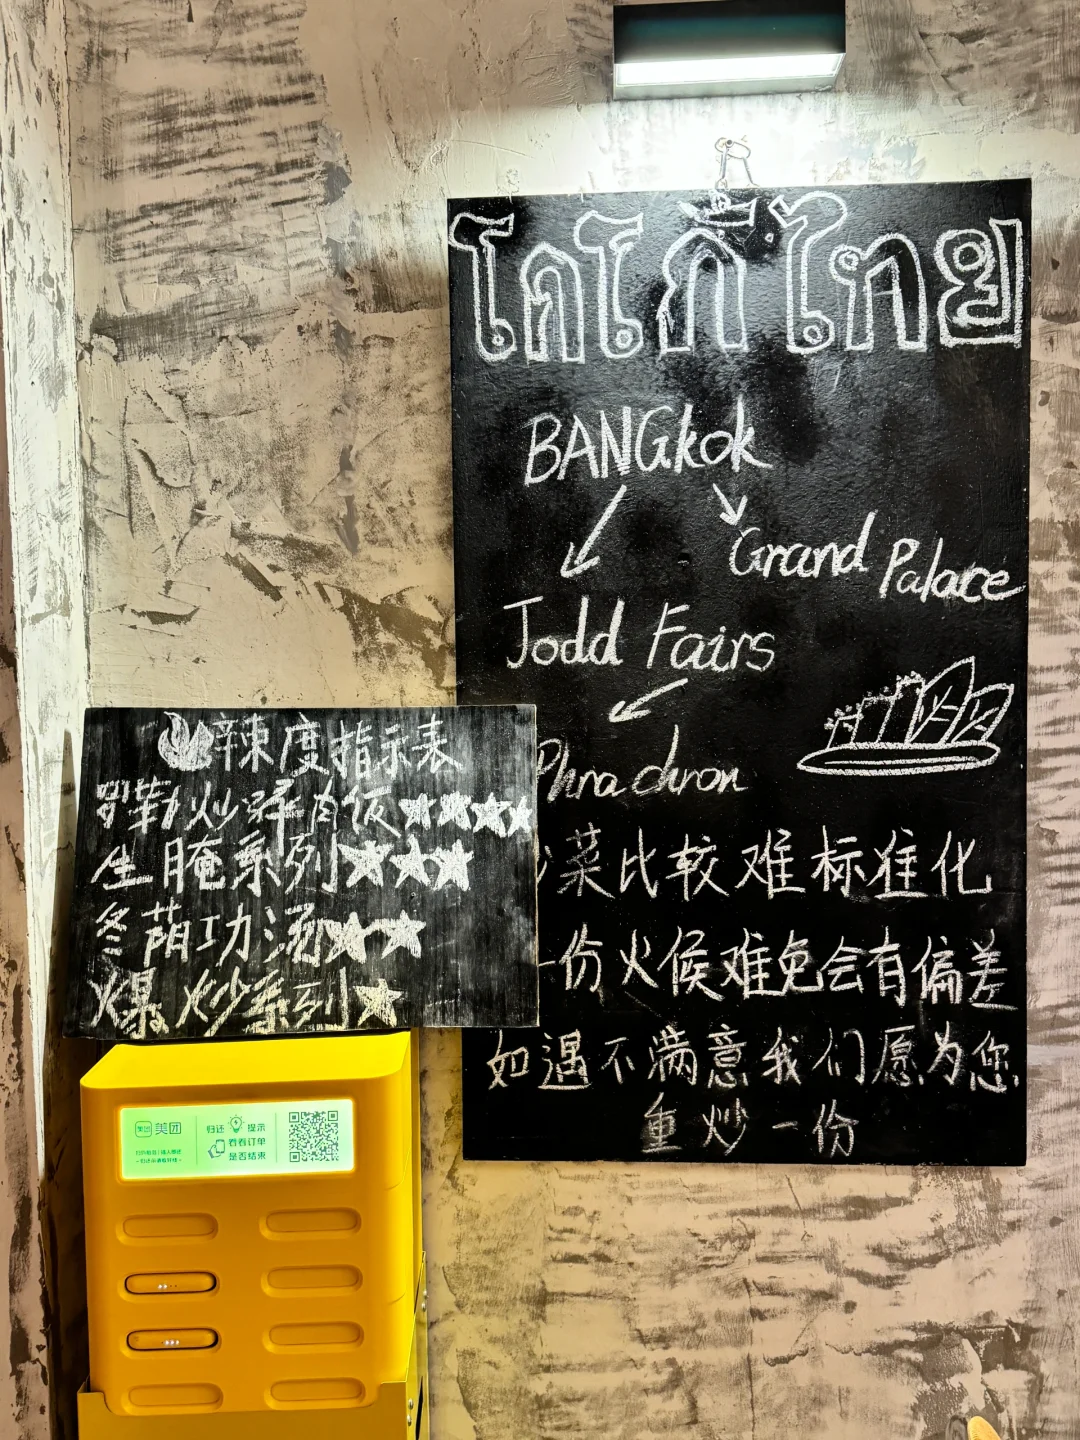 โคโก้ไทย
BANGkok
Grand Palace
Jodd Fairs
Phra
菜比较难标准化
一份火候难免会有偏差
如遇不满意我们愿为您
重炒一份
辣度指示表
勒炒肉饭★★★★
生腌系列★★★
冬荫功汤★★
爆炒系列★
美团 美团
归还 提示
看看订单
是否结束